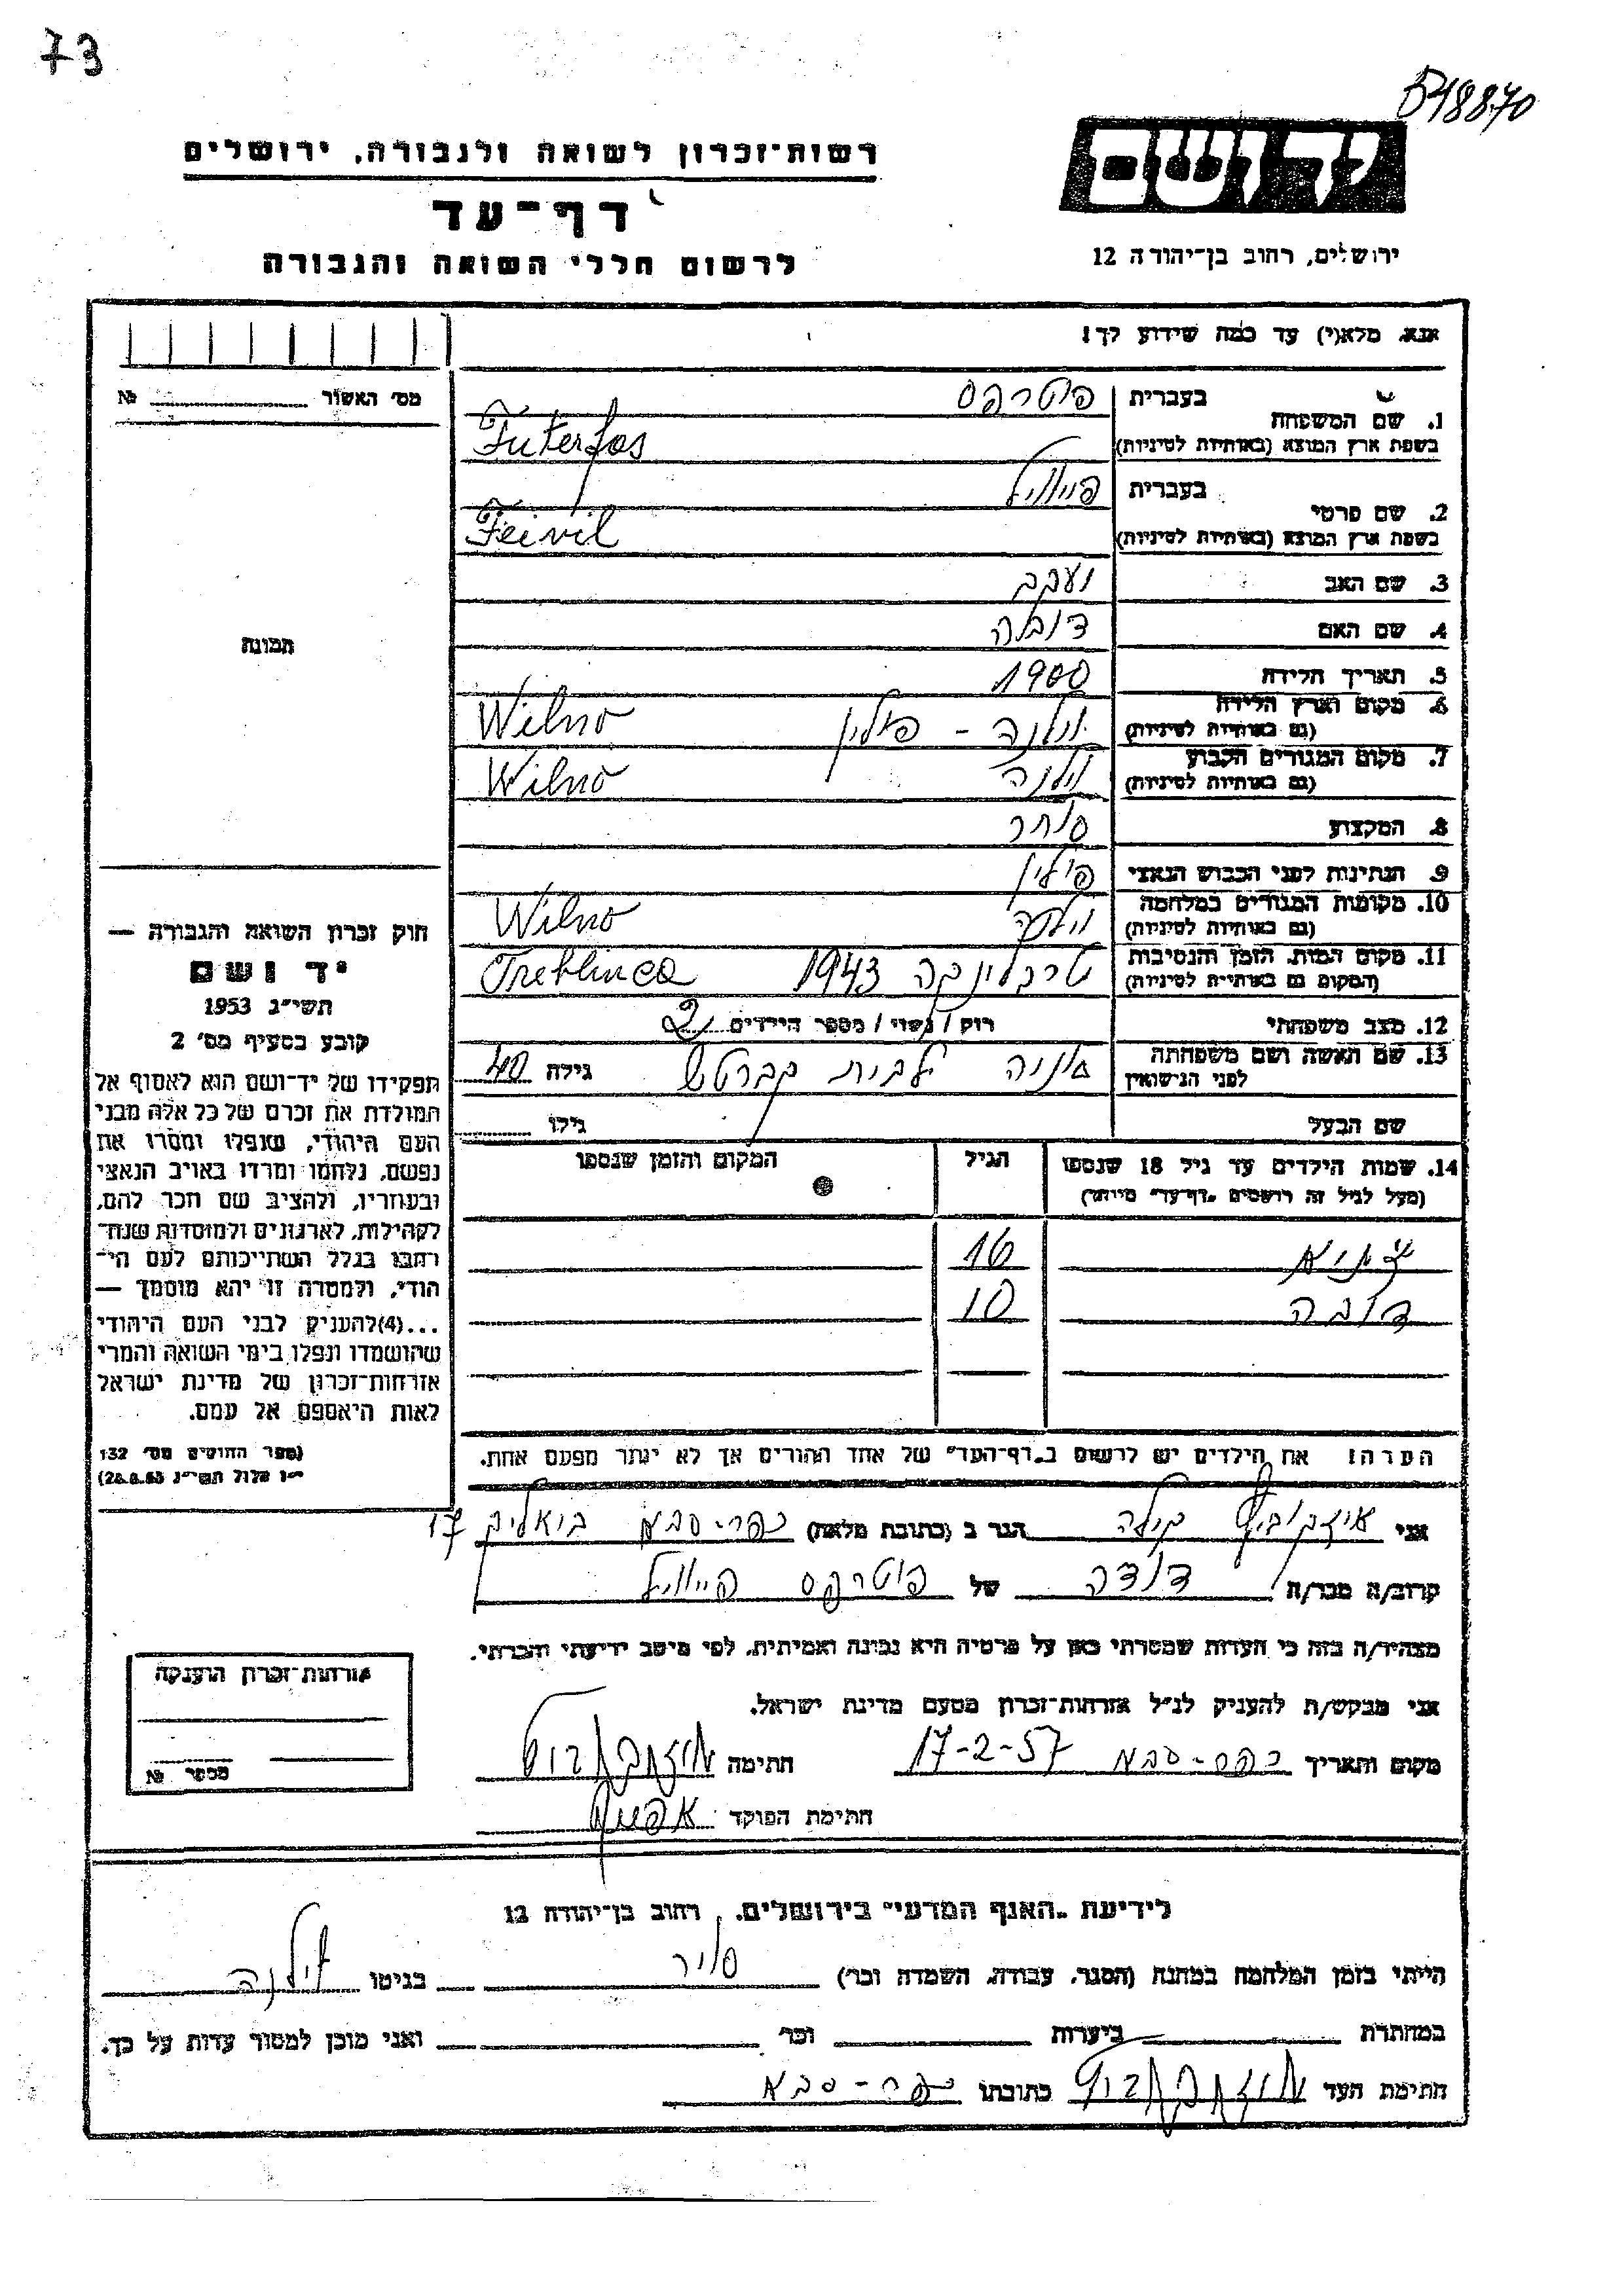 73
רשות־זכרון לשואה ולגבורה, ירושלים
דף־עד
לרשום חללי השואה והגבורה
יד ושם
ירושלים, רחוב בן־יהודה 12
אנא, מלא(י) עד כמה שידוע לך!
מס׳ האשור № ______
1. שם המשפחה בעברית פוטרפס
בשפת ארץ המוצא (באותיות לטיניות) Futerfas
2. שם פרטי בעברית פייוויל
בשפת ארץ המוצא (באותיות לטיניות) Feivil
3. שם האב יעקב
4. שם האם
5. תאריך הלידה 1900
6. מקום וארץ הלידה וילנה - פולין Wilno
(גם באותיות לטיניות)
7. מקום המגורים הקבוע וילנה Wilno
(גם באותיות לטיניות)
8. המקצוע סוחר
9. הנתינות לפני הכבוש הנאצי פולין
10. מקומות המגורים במלחמה וילנה Wilno
(גם באותיות לטיניות)
11. מקום המות, הזמן והנסיבות טרבלינקה 1943 Treblinca
(המקום גם באותיות לטיניות)
12. מצב משפחתי רווק / נשוי / מספר הילדים 2
13. שם האשה ושם משפחתה לבית גילה 40
לפני הנישואין
שם הבעל גילו
14. שמות הילדים עד גיל 18 שנספו הגיל המקום והזמן שנספו
(מעל לגיל זה רושמים „דף־עד” מיוחד)
16
דובה 10
הערה: את הילדים יש לרשום ב„דף־העד” של אחד ההורים אך לא יותר מפעם אחת.
תמונה
חוק זכרון השואה והגבורה —
יד ושם
תשי״ג 1953
קובע בסעיף מס׳ 2
תפקידו של יד־ושם הוא לאסוף אל
המולדת את זכרם של כל אלה מבני
העם היהודי, שנפלו ומסרו את
נפשם, נלחמו ומרדו באויב הנאצי
ובעוזריו, ולהציב שם וזכר להם,
לקהילות, לארגונים ולמוסדות שנח־
רבו בגלל השתייכותם לעם הי־
הודי, ולמטרה זו יהא מוסמך —
...(4)להעניק לבני העם היהודי
שהושמדו ונפלו בימי השואה והמרי
אזרחות־זכרון של מדינת ישראל
לאות היאספם אל עמם.
(ספר החוקים מס׳ 132
י״ז אלול תשי״ג 28.8.53)
אני הגר ב (כתובת מלאה) כפר-סבא ביאליק 17
קרוב/ה מכר/ה דודה של פוטרפס פייוויל
מצהיר/ה בזה כי העדות שמסרתי כאן על פרטיה היא נכונה ואמיתית, לפי מיטב ידיעתי והכרתי.
אני מבקש/ת להעניק לנ״ל אזרחות־זכרון מטעם מדינת ישראל.
מקום ותאריך כפר-סבא 17-2-57 חתימה
חתימת הפוקד
אזרחות־זכרון הוענקה
מספר №
לידיעת „האגף המדעי” בירושלים, רחוב בן־יהודה 12
הייתי בזמן המלחמה במחנה (הסגר, עבודה, השמדה וכו׳) בגיטו וילנה
במחתרת ביערות וכו׳ ואני מוכן למסור עדות על כך.
חתימת העד כתובתו כפר-סבא